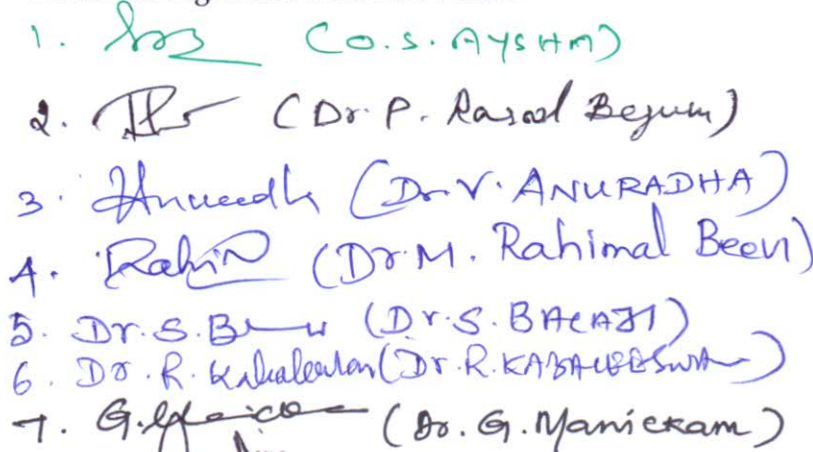 1. (O.S. AYSHA)
2. (Dr. P. Rasool Begum)
3. Anuradh (Dr. V. ANURADHA)
4. Rahim (Dr. M. Rahimal Beevi)
5. Dr. S. B (Dr. S. BALAJI)
6. Dr. R. (Dr. R. KABALEESWA
7. G. (Dr. G. Manickam)